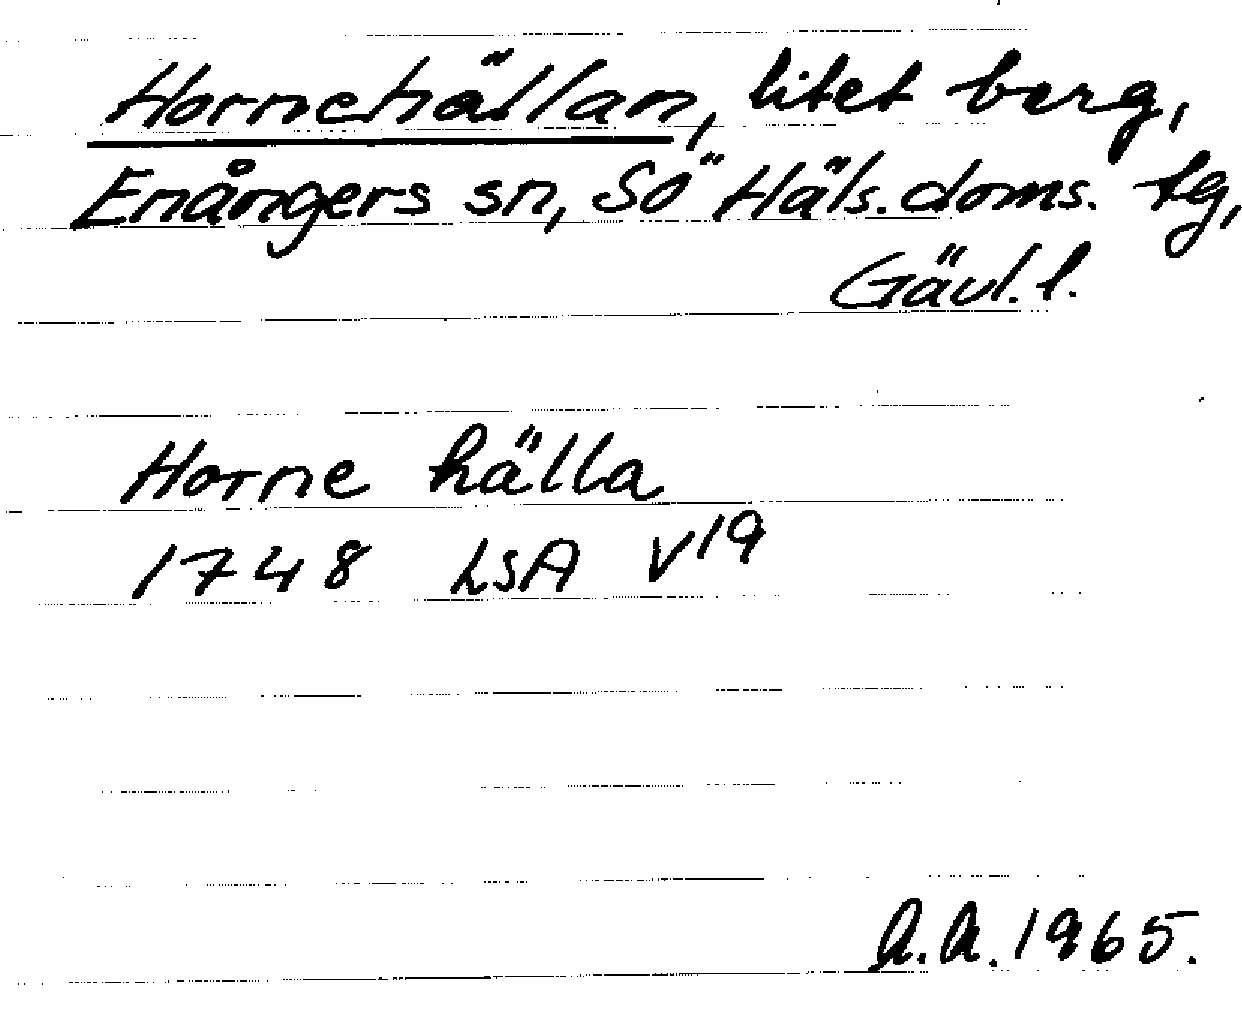 Hornehällan, litet berg,
Enångers sn, Sö Häls. doms. tg,
Gävl. l.
Horne hälla
1748 LSA V19
A.A. 1965.